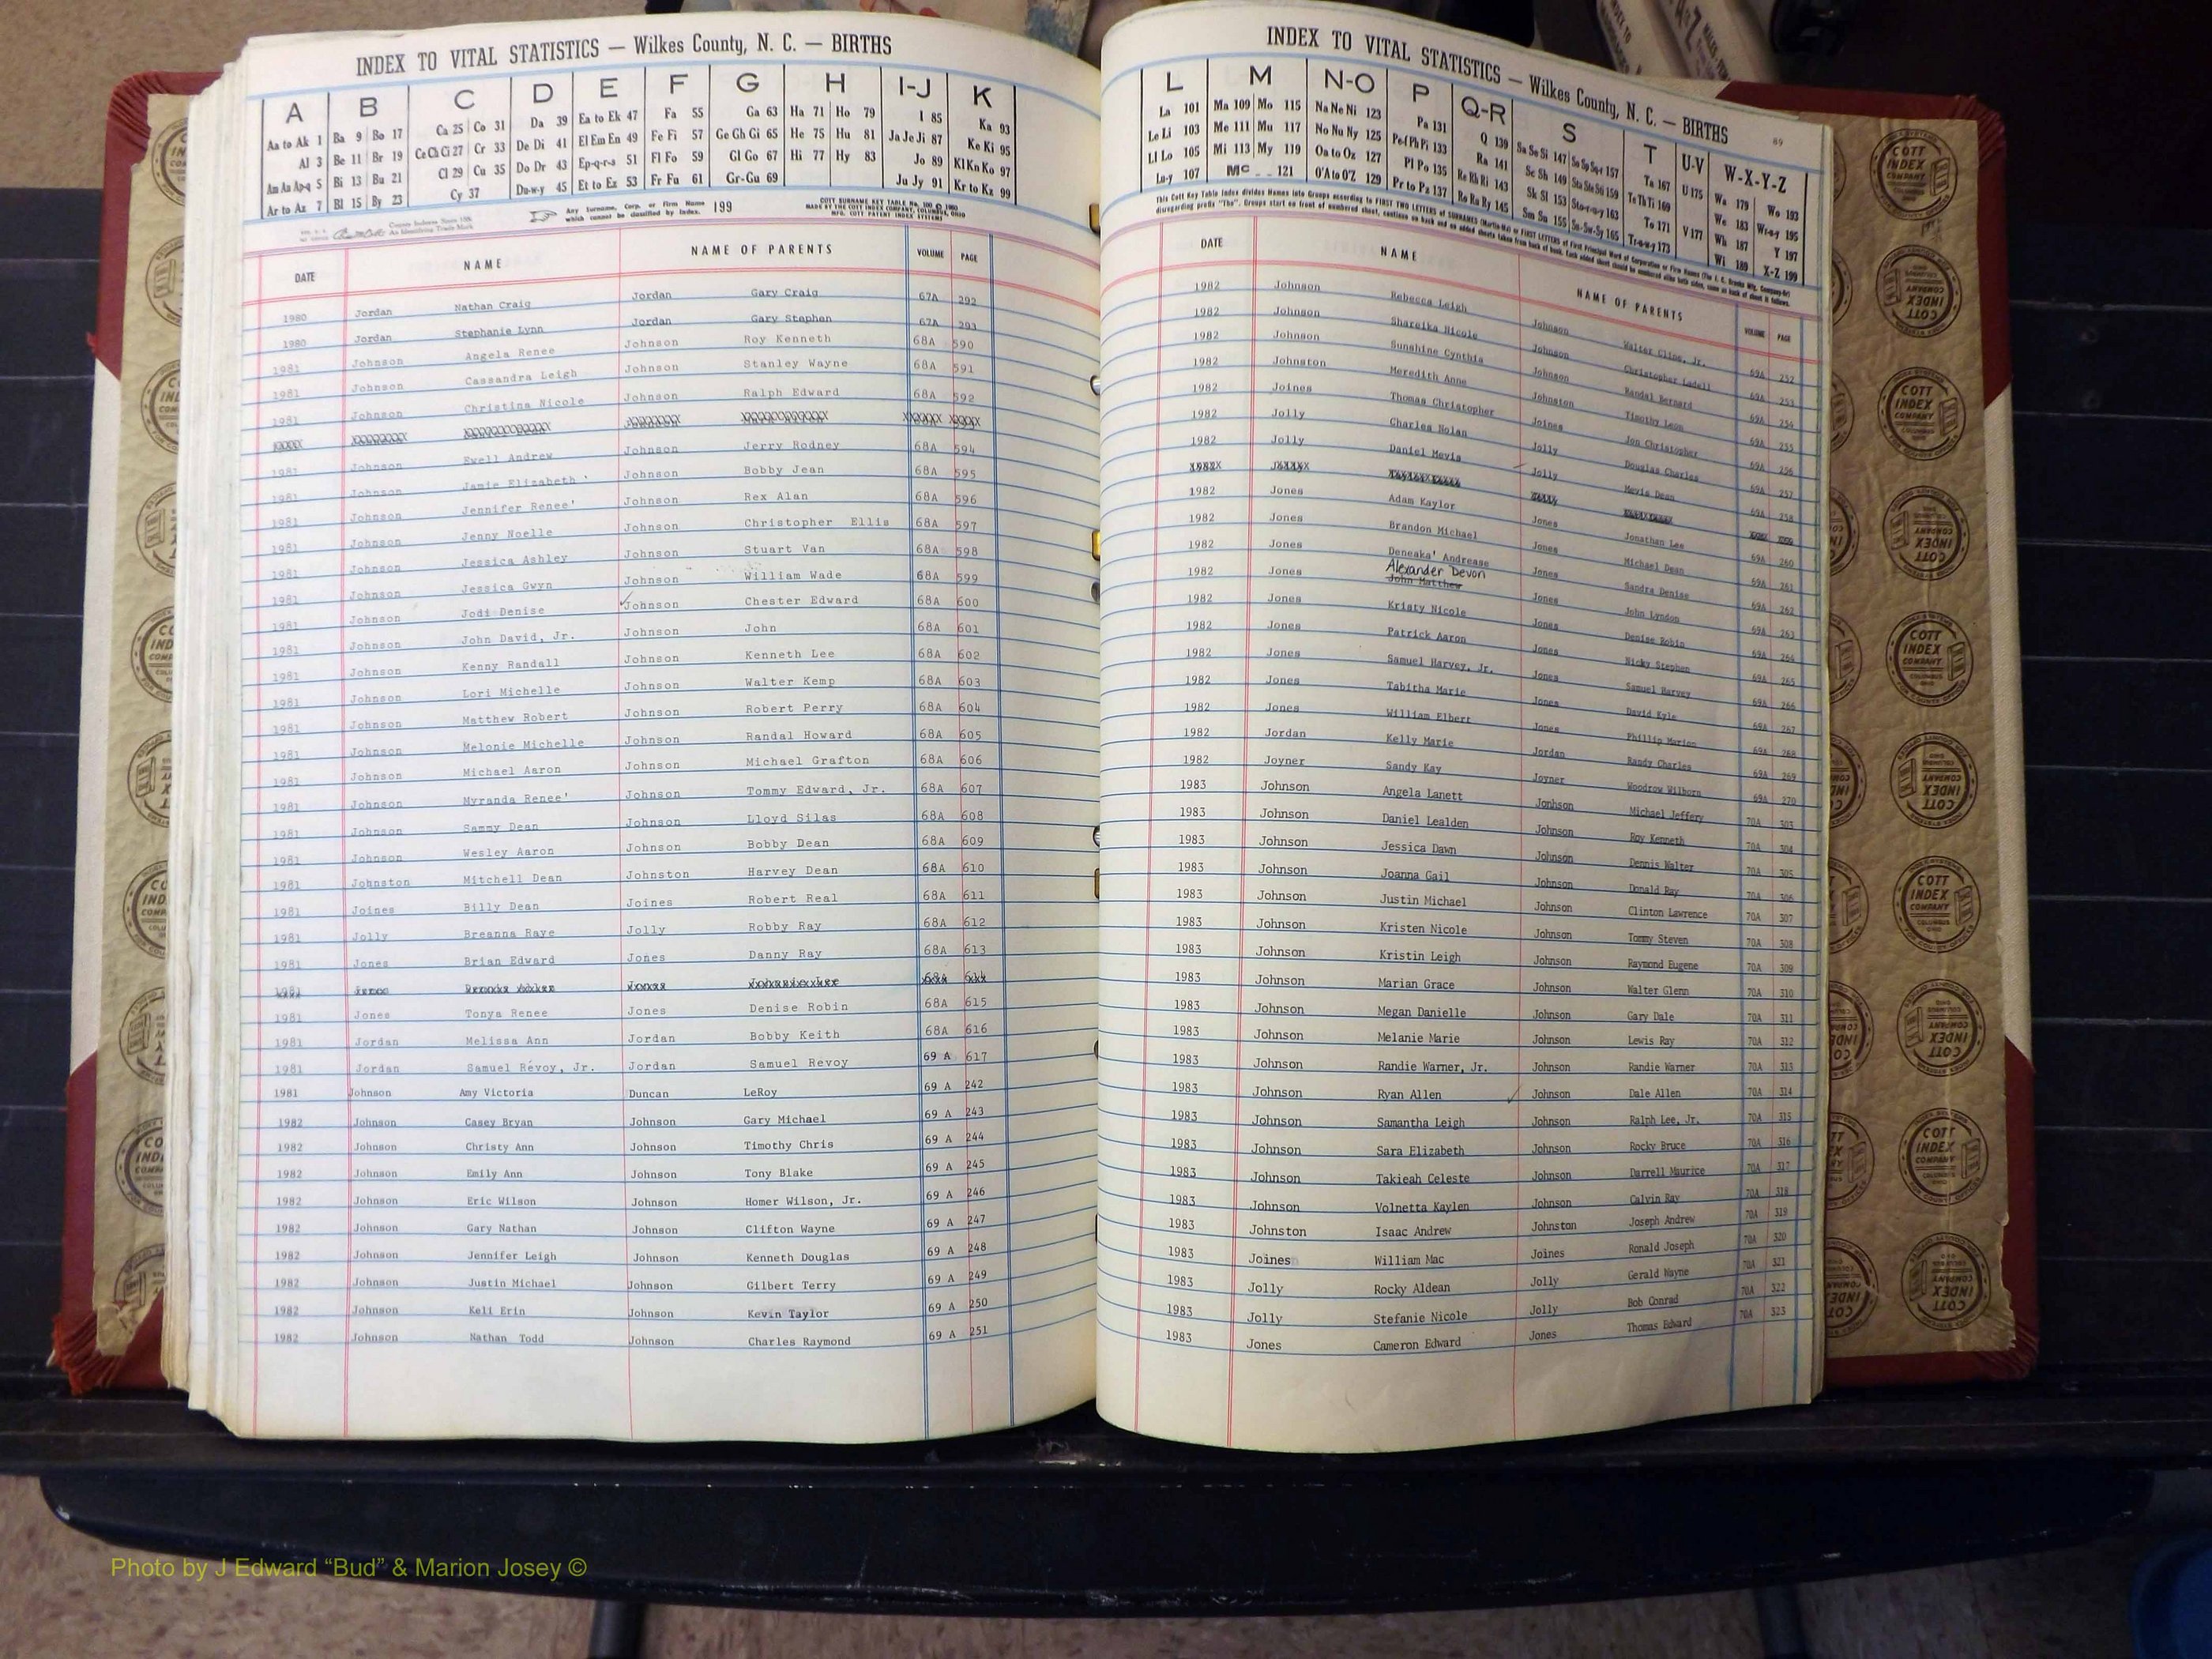 INDEX TO VITAL STATISTICS — Wilkes County, N. C. — BIRTHS
A B C D E F G H I-J K
Aa to Ak 1 Ba 9 Bo 17 Ca 25 Co 31 Da 39 Ea to Ek 47 Fa 55 Ga 63 Ha 71 Ho 79 I 85 Ka 93
Al 3 Be 11 Br 19 Ce Ch Ci 27 Cr 33 De Di 41 El Em En 49 Fe Fi 57 Ge Gh Gi 65 He 75 Hu 81 Ja Je Ji 87 Ke Ki 95
Am An Ap-q 5 Bi 13 Bu 21 Cl 29 Cu 35 Do Dr 43 Ep-q-r-s 51 Fl Fo 59 Gl Go 67 Hi 77 Hy 83 Jo 89 Kl Kn Ko 97
Ar to Az 7 Bl 15 By 23 Cy 37 Du-w-y 45 Et to Ez 53 Fr Fu 61 Gr-Gu 69 Ju Jy 91 Kr to Kz 99
Any Surname, Corp. or Firm Name which cannot be classified by Index. 199
DATE NAME NAME OF PARENTS VOLUME PAGE
1980 Jordan Nathan Craig Jordan Gary Craig 67A 292
1980 Jordan Stephanie Lynn Jordan Gary Stephen 67A 293
1981 Johnson Angela Renee Johnson Roy Kenneth 68A 590
1981 Johnson Cassandra Leigh Johnson Stanley Wayne 68A 591
1981 Johnson Christina Nicole Johnson Ralph Edward 68A 592
1981 Johnson Evell Andrew Johnson Jerry Rodney 68A 594
1981 Johnson Jamie Elizabeth Johnson Bobby Jean 68A 595
1981 Johnson Jennifer Renee' Johnson Rex Alan 68A 596
1981 Johnson Jenny Noelle Johnson Christopher Ellis 68A 597
1981 Johnson Jessica Ashley Johnson Stuart Van 68A 598
1981 Johnson Jessica Gwyn Johnson William Wade 68A 599
1981 Johnson Jodi Denise Johnson Chester Edward 68A 600
1981 Johnson John David, Jr. Johnson John 68A 601
1981 Johnson Kenny Randall Johnson Kenneth Lee 68A 602
1981 Johnson Lori Michelle Johnson Walter Kemp 68A 603
1981 Johnson Matthew Robert Johnson Robert Perry 68A 604
1981 Johnson Melonie Michelle Johnson Randal Howard 68A 605
1981 Johnson Michael Aaron Johnson Michael Grafton 68A 606
1981 Johnson Myranda Renee' Johnson Tommy Edward, Jr. 68A 607
1981 Johnson Sammy Dean Johnson Lloyd Silas 68A 608
1981 Johnson Wesley Aaron Johnson Bobby Dean 68A 609
1981 Johnston Mitchell Dean Johnston Harvey Dean 68A 610
1981 Joines Billy Dean Joines Robert Real 68A 611
1981 Jolly Breanna Raye Jolly Robby Ray 68A 612
1981 Jones Brian Edward Jones Danny Ray 68A 613
1981 68A 614
1981 Jones Tonya Renee Jones Denise Robin 68A 615
1981 Jordan Melissa Ann Jordan Bobby Keith 68A 616
1981 Jordan Samuel Revoy, Jr. Jordan Samuel Revoy 69 A 617
1981 Johnson Amy Victoria Duncan LeRoy 69 A 242
1982 Johnson Casey Bryan Johnson Gary Michael 69 A 243
1982 Johnson Christy Ann Johnson Timothy Chris 69 A 244
1982 Johnson Emily Ann Johnson Tony Blake 69 A 245
1982 Johnson Eric Wilson Johnson Homer Wilson, Jr. 69 A 246
1982 Johnson Gary Nathan Johnson Clifton Wayne 69 A 247
1982 Johnson Jennifer Leigh Johnson Kenneth Douglas 69 A 248
1982 Johnson Justin Michael Johnson Gilbert Terry 69 A 249
1982 Johnson Keli Erin Johnson Kevin Taylor 69 A 250
1982 Johnson Nathan Todd Johnson Charles Raymond 69 A 251
INDEX TO VITAL STATISTICS — Wilkes County, N. C. — BIRTHS
89
L M N-O P Q-R S T U-V W-X-Y-Z
La 101 Ma 109 Mo 115 Na Ne Ni 123 Pa 131 Q 139 Sa Se Si 147 So Sp Sq-r 157 Ta 167 U 175 Wa 179 Wo 193
Le Li 103 Me 111 Mu 117 No Nu Ny 125 Pe Pf Ph Pi 133 Ra 141 Sc Sh 149 Sta Ste Sti 159 Te Th Ti 169 V 177 We 183 Wr-u-y 195
Ll Lo 105 Mi 113 My 119 Oa to Oz 127 Pl Po 135 Re Rh Ri 143 Sk Sl 153 Sto-r-u-y 163 To 171 Wh 187 Y 197
Lu-y 107 Mc 121 O'A to O'Z 129 Pr to Pz 137 Ro Ru Ry 145 Sm Sn 155 Su-Sw-Sy 165 Tr-u-w-y 173 Wi 189 X-Z 199
DATE NAME NAME OF PARENTS VOLUME PAGE
1982 Johnson Rebecca Leigh Johnson Walter Cline, Jr. 69A 252
1982 Johnson Shareika Nicole Johnson Christopher Ladell 69A 253
1982 Johnson Sunshine Cynthia Johnson Randal Bernard 69A 254
1982 Johnston Meredith Anne Johnston Timothy Leon 69A 255
1982 Joines Thomas Christopher Joines Jon Christopher 69A 256
1982 Jolly Charles Nolan Jolly Douglas Charles 69A 257
1982 Jolly Daniel Mevis Jolly Mevis Dean 69A 258
1982 Jones Adam Kaylor Jones Jonathan Lee 69A 260
1982 Jones Brandon Michael Jones Michael Dean 69A 261
1982 Jones Deneaka' Andrease Jones Sandra Denise 69A 262
1982 Jones Alexander Devon John Matthew Jones John Lyndon 69A 263
1982 Jones Kristy Nicole Jones Denise Robin 69A 264
1982 Jones Patrick Aaron Jones Nicky Stephen 69A 265
1982 Jones Samuel Harvey, Jr. Jones Samuel Harvey 69A 266
1982 Jones Tabitha Marie Jones David Kyle 69A 267
1982 Jones William Elbert Jones Phillip Marion 69A 268
1982 Jordan Kelly Marie Jordan Randy Charles 69A 269
1982 Joyner Sandy Kay Joyner Woodrow Wilborn 69A 270
1983 Johnson Angela Lanett Jonhson Michael Jeffery 70A 303
1983 Johnson Daniel Lealden Johnson Roy Kenneth 70A 304
1983 Johnson Jessica Dawn Johnson Dennis Walter 70A 305
1983 Johnson Joanna Gail Johnson Donald Ray 70A 306
1983 Johnson Justin Michael Johnson Clinton Lawrence 70A 307
1983 Johnson Kristen Nicole Johnson Tommy Steven 70A 308
1983 Johnson Kristin Leigh Johnson Raymond Eugene 70A 309
1983 Johnson Marian Grace Johnson Walter Glenn 70A 310
1983 Johnson Megan Danielle Johnson Gary Dale 70A 311
1983 Johnson Melanie Marie Johnson Lewis Ray 70A 312
1983 Johnson Randie Warner, Jr. Johnson Randie Warner 70A 313
1983 Johnson Ryan Allen Johnson Dale Allen 70A 314
1983 Johnson Samantha Leigh Johnson Ralph Lee, Jr. 70A 315
1983 Johnson Sara Elizabeth Johnson Rocky Bruce 70A 316
1983 Johnson Takieah Celeste Johnson Darrell Maurice 70A 317
1983 Johnson Volnetta Kaylen Johnson Calvin Ray 70A 318
1983 Johnston Isaac Andrew Johnston Joseph Andrew 70A 319
1983 Joines William Mac Joines Ronald Joseph 70A 320
1983 Jolly Rocky Aldean Jolly Gerald Wayne 70A 321
1983 Jolly Stefanie Nicole Jolly Bob Conrad 70A 322
1983 Jones Cameron Edward Jones Thomas Edward 70A 323
COTT INDEX COMPANY
Photo by J Edward “Bud” & Marion Josey ©